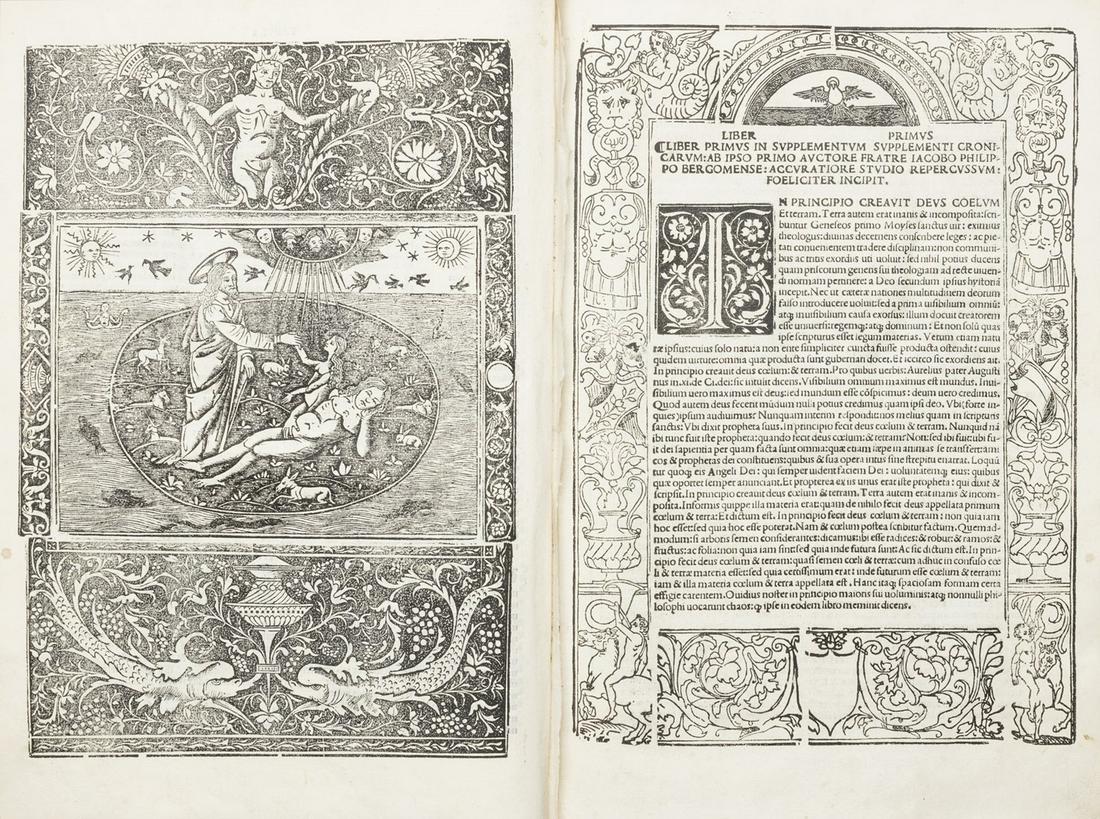 LIBER PRIMVS
LIBER PRIMVS IN SVPPLEMENTVM SVPPLEMENTI CRONI-
CARVM: AB IPSO PRIMO AVCTORE FRATRE IACOBO PHILIP-
PO BERGOMENSE: ACCVRATIORE STVDIO REPERCVSSVM:
FOELICITER INCIPIT.
IN PRINCIPIO CREAVIT DEVS COELVM
Et terram. Terra autem erat inanis & incomposita: scri
buntur Geneseos primo Moyses sanctus uir: eximius
theologus: diuinas decernens conscribere leges: ac pie-
tati conuenientem tradere disciplinam: non communi-
bus ac tritis exordiis uti uoluit: sed nihil potius ducens
quam priscorum generis sui theologiam ad recte uiuen-
di normam pertinere: a Deo secundum ipsius hystoria
incepit. Nec ut cæteræ nationes multitudinem deorum
falso introducere uoluit: sed a prima uisibilium omniū:
atq; inuisibilium causa exorsus: illum docuit creatorem
esse uniuersi: regemq; atq; dominum: Et non solū quas
ipse scripturus esset legum materias. Verum etiam natu
ræ ipsius: cuius solo natu: a non ente simpliciter cuncta fuisse producta ostendit: cuius
quidem uirtute: omnia quæ producta sunt gubernari docet. Et iccirco sic exordiens ait.
In principio creauit deus cœlum: & terram. Pro quibus uerbis: Aurelius pater Augusti
nus in .xi. de Ci. dei: sic intulit dicens. Visibilium omnium maximus est mundus. Inui-
sibilium uero maximus est deus: sed mundum esse cōspicimus: deum uero credimus.
Quod autem deus fecerit mūdum nulli potius credimus quam ipsi deo. Vbi (forte in-
quies) ipsum audiuimus? Nunquam interim respondit nos melius quam in scripturis
sanctis: Vbi dixit propheta suus. In principio fecit deus cœlum: & terram. Nunquid nā
ibi tunc fuit iste propheta: quando fecit deus cœlum: & terram? Non: sed ibi fuit: ubi fu
it dei sapientia per quam facta sunt omnia: quæ etiam sæpe in animas se transfert: ami
cos & prophetas dei constituens: quibus & sua opera intus sine strepitu enarrat. Loquū
tur quoq; eis Angeli Dei: qui semper uident faciem Dei: uoluntatemq; eius: quibus
quæ oportet semper anunciant. Et propterea ex his unus erat iste propheta: qui dixit &
scripsit. In principio creauit deus cœlum & terram. Terra autem erat inanis & incom-
posita. Informis quippe illa materia erat: quam de nihilo fecit deus appellata primum
cœlum & terra: Et dictum est. In principio fecit deus cœlum & terram: non quia iam
hoc esset: sed quia hoc esse poterat. Nam & cœlum postea scribitur factum. Quemad-
modum: si arboris semen considerantes: dicamus: ibi esse radices: & robur: & ramos: &
fructus: ac folia: non quia iam sint: sed quia inde futura sunt: Ac sic dictum est. In prin-
cipio fecit deus cœlum & terram: quasi semen cœli & terræ: cum adhuc in confuso cœ
li & terræ materia esset: sed quia certissimum erat inde futurum esse cœlum & terram:
iam & illa materia cœlum & terra appellata est. Hanc itaq; spaciosam formam certa
effigie carentem. Ouidius noster in principio maioris sui uoluminis: atq; nonnulli phi-
losophi uocarunt chaos: q; ipse in eodem libro meminit dicens.